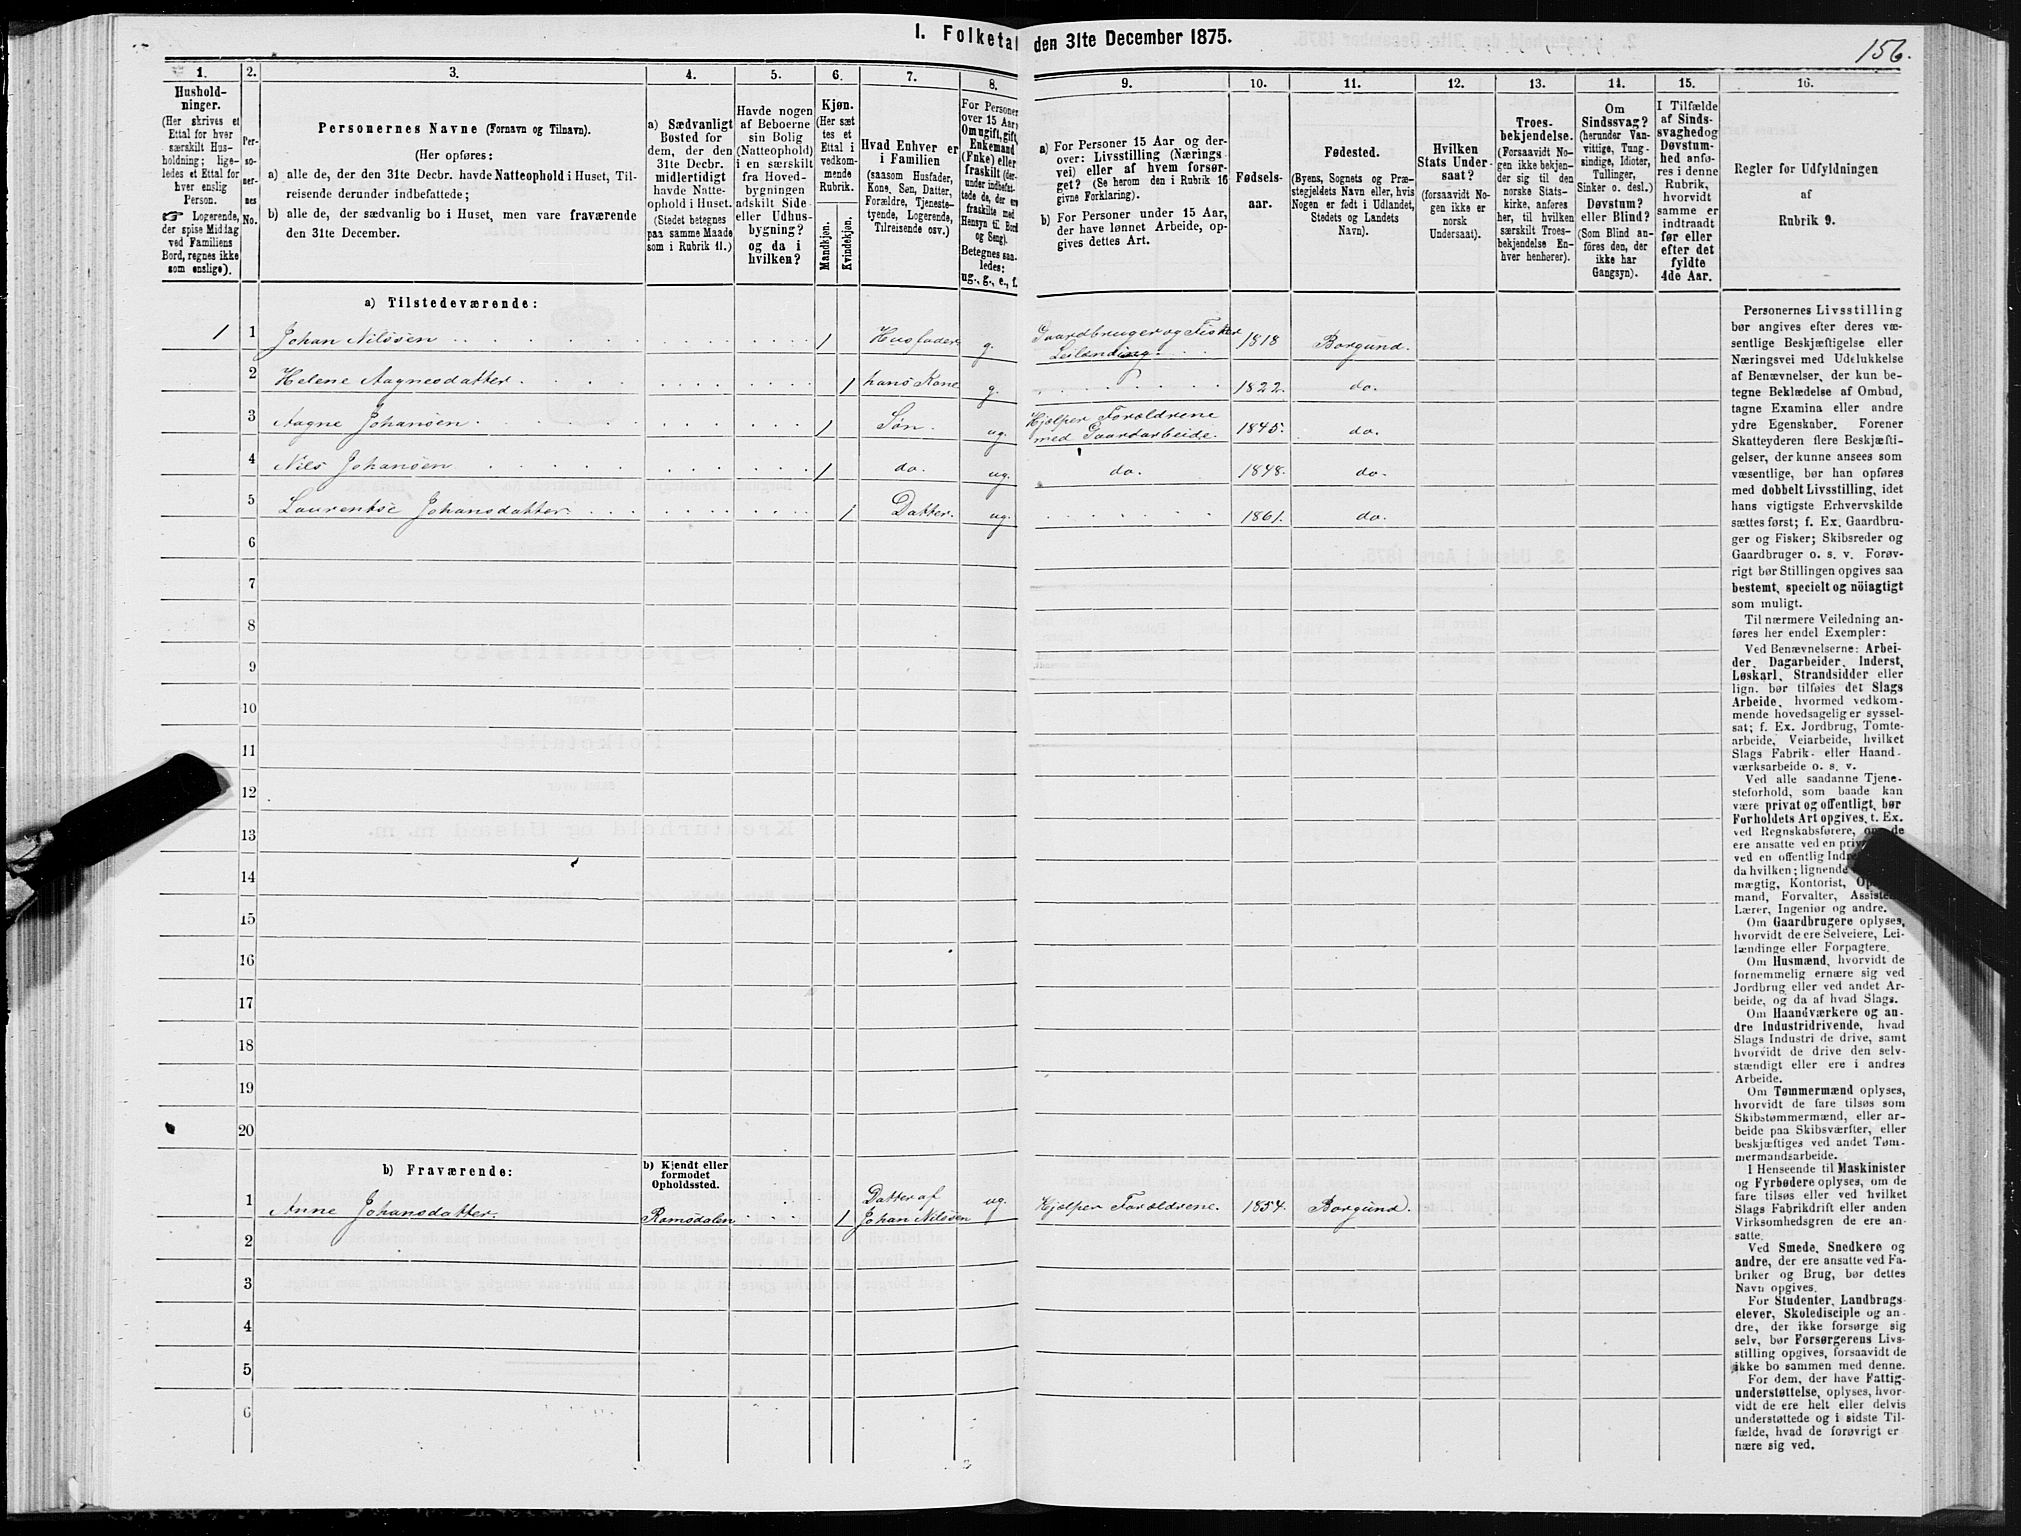 I. Folketal den 31te December 1875.
156.
1.
2.
3.
4.
5.
6.
7.
8.
9.
10.
11.
12.
13.
14.
15.
16.
Hushold-
ninger.
(Her skrives et
Ettal for hver
særskilt Hus-
holdning; lige-
ledes et Ettal for
hver enslig
Person.
☞ Logerende,
der spise Middag
ved Familiens
Bord, regnes ikke
som enslige).
Per-
so-
ner-
nes
No.
Personernes Navne (Fornavn og Tilnavn).
(Her opføres:
a) alle de, der den 31te Decbr. havde Natteophold i Huset, Til-
reisende derunder indbefattede;
b) alle de, der sædvanlig bo i Huset, men vare fraværende
den 31te December.
a) Sædvanligt
Bosted for
dem, der den
31te Decbr.
midlertidigt
havde Natte-
ophold i Huset.
(Stedet betegnes
paa samme Maade
som i Rubrik 11.)
Havde nogen
af Beboerne
sin Bolig
(Natteophold)
i en særskilt
fra Hoved-
bygningen
adskilt Side-
eller Udhus-
bygning?
og da i
hvilken?
Kjøn.
(Her sæt
tes et
Ettal i
vedkom-
mende
Rubrik.
Mandkjøn.
Kvindekjøn.
Hvad Enhver er
i Familien
(saasom Husfader,
Kone, Søn, Datter,
Forældre, Tjeneste-
tyende, Logerende,
Tilreisende osv.)
For Personer
over 15 Aar,
Om ugift, gift,
Enkemand
(Enke) eller
fraskilt (der-
under indbefat-
tede de, der ere
fraskilte med
Hensyn til Bord
og Seng).
Betegnes saa-
ledes:
ug., g., e., f.
a) For Personer 15 Aar og der-
over: Livsstilling (Nærings-
vei) eller af hvem forsør-
get? (Se herom den i Rubrik 16
givne Forklaring).
b) For Personer under 15 Aar,
der have lønnet Arbeide, op-
gives dettes Art.
Fødsels-
aar.
Fødested.
(Byens, Sognets og Præ-
stegjeldets Navn eller, hvis
Nogen er født i Udlandet,
Stedets og Landets
Navn).
Hvilken
Stats Under-
saat?
(forsaavidt No-
gen ikke er
norsk
Undersaat).
Troes-
bekjendelse.
(Forsaavidt No-
gen ikke bekjen-
der sig til den
norske Stats-
kirke, anføres
her, til hvilken
særskilt Troes-
bekjendelse En-
hver henhører).
Om
Sindssvag?
(herunder Van-
vittige, Tung-
sindige, Idioter,
Tullinger,
Sinker o. desl.)
Døvstum?
eller Blind?
(Som Blind an-
føres den, der
ikke har
Gangsyn).
I Tilfælde
af Sinds-
svaghed og
Døvstum-
hed anfø-
res i denne
Rubrik,
hvorvidt
samme er
indtraadt
før eller
efter det
fyldte
4de Aar.
Regler for Udfyldningen
af
Rubrik 9.
a) Tilstedeværende:
1 1 Johan Nilssen 1 Husfader g. Gaardbruger og Fisker Leilænding. 1818 Borgund.
2 Helene Aagnesdatter. 1 hans Kone g. 1822. do.
3 Aagne Johansen 1 Søn. ug. Hjælper Forældrene med Gaardarbeide. 1845. do.
4 Nils Johansen 1 do. ug. do. 1848. do.
5 Laurentse Johansdatter 1 Datter. ug. 1861. do.
6
7
8
9
10
11
12
13
14
15
16
17
18
19
20
b) Fraværende:
b) Kjendt eller
formodet
Opholdssted.
1 Anne Johansdatter. Romsdalen 1 Datter af Johan Nilssen ug. Hjælper Forældrene. 1854. Borgund.
2
3
4
5
6
Personernes Livsstilling
bør angives efter deres væ-
sentlige Beskjæftigelse eller
Næringsvei med Udelukkelse
af Benævnelser, der kun be-
tegne Beklædelse af Ombud,
tagne Examina eller andre
ydre Egenskaber. Forener
Skatteyderen flere Beskjæfti-
gelser, der kunne ansees som
væsentlige, bør han opføres
med dobbelt Livsstilling, idet
hans vigtigste Erhvervskilde
sættes først; f. Ex. Gaardbru-
ger og Fisker; Skibsreder og
Gaardbruger o. s. v. Forøv-
rigt bør Stillingen opgives saa
bestemt, specielt og nöiagtigt
som muligt.
Til nærmere Veiledning an-
føres her endel Exempler:
Ved Benævnelserne: Arbei-
der, Dagarbeider, Inderst,
Løskarl, Strandsidder eller
lign. bør tilføies det Slags
Arbeide, hvormed vedkom-
mende hovedsagelig er syssel-
sat; f. Ex. Jordbrug, Tomte-
arbeide, Veiarbeide, hvilket
Slags Fabrik- eller Haand-
værksarbeide o. s. v.
Ved alle saadanne Tjene-
steforhold, som baade kan
være privat og offentligt, bør
Forholdets Art opgives, t. Ex.
ved Regnskabsførere, om de
ere ansatte ved en
ved en offentlig
da hvilken; lignende
mægtig, Kontorist,
mand, Forvalter,
Lærer, Ingeniør og andre.
Om Gaardbrugere oplyses,
hvorvidt de ere Selveiere, Lei-
lændinge eller Forpagtere.
Om Husmænd, hvorvidt de
fornemmelig ernære sig ved
Jordbrug eller ved andet Ar-
beide, og da af hvad Slags.
Om Haandværkere og an-
dre Industridrivende, hvad
Slags Industri de drive, samt
hvorvidt de drive den selv-
stændigt eller ere i andres
Arbeide.
Om Tømmermænd oplyses,
hvorvidt de fare tilsøs som
Skibstømmermænd, eller ar-
beide paa Skibsværfter, eller
beskjæftiges ved andet Tøm-
mermandsarbeide.
I Henseende til Maskinister
og Fyrbødere oplyses, om de
fare tilsøs eller ved hvilket
Slags Fabrikdrift eller anden
Virksomhedsgren de ere an-
satte.
Ved Smede, Snedkere og
andre, der ere ansatte ved Fa-
briker og Brug, bør dettes
Navn opgives.
For Studenter, Landbrugs-
elever, Skoledisciple og an-
dre, der ikke forsørge sig
selv, bør Forsørgerens Livs-
stilling opgives, forsaavidt de
ikke bo sammen med denne.
For dem, der have Fattig-
understøttelse, oplyses, hvor-
vidt de ere helt eller delvis
understøttede og i sidste Til-
fælde, hvad de forøvrigt er
nære sig ved.